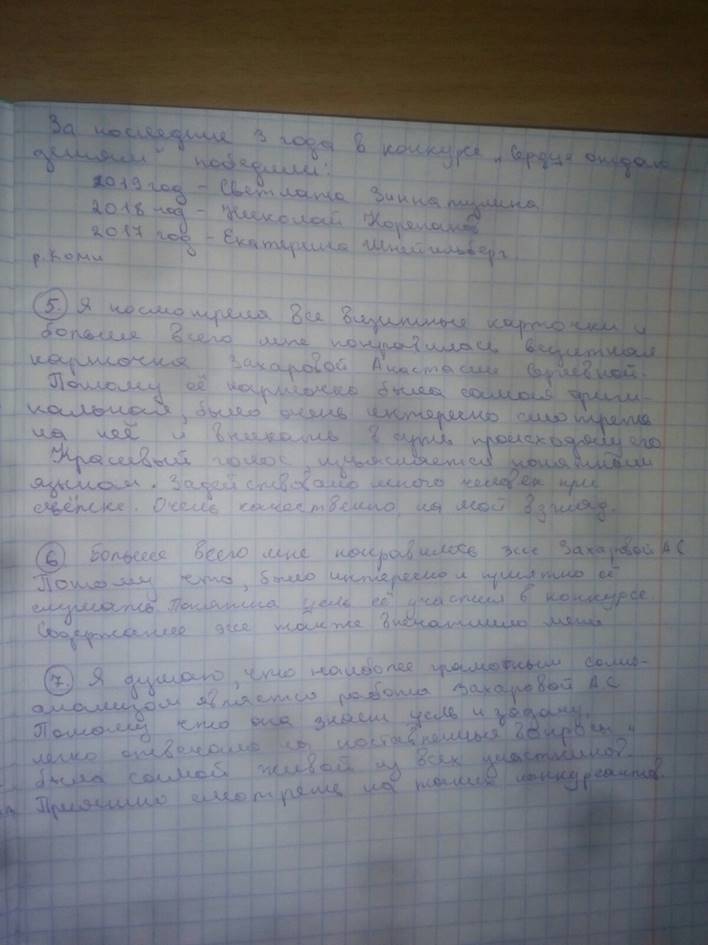 За последние 3 года в конкурсе „Сердце отдаю
детям" победили:
2019 год - Светлана Зиннатулина
2018 год - Николай Корепанов
2017 год - Екатерина Шнейльберг
р.Коми
5. Я посмотрела все визитные карточки и
больше всего мне понравилась визитная
карточка Захаровой Анастасии Сергевной.
Потому её карточка была самой ориги-
нальной, было очень интересно смотреть
на неё и вникать в суть происходящего
Красивый голос, изъясняется понятным
языком. Задействовано много человек при
съёмке. Очень качественно, на мой взгляд.
6 Больше всего мне понравилось эссе Захаровой АС
Потому что, было интересно и приятно её
слушать. Понятна цель её участия в конкурсе.
Содержание эссе также впечатлило меня
7. Я думаю, что наиболее грамотным само-
анализом является работа Захаровой АС
Потому что она знает цель и задачу,
легко отвечала на поставленные вопросы и
была самой живой из всех участников.
Приятно смотреть на таких конкурсантов.